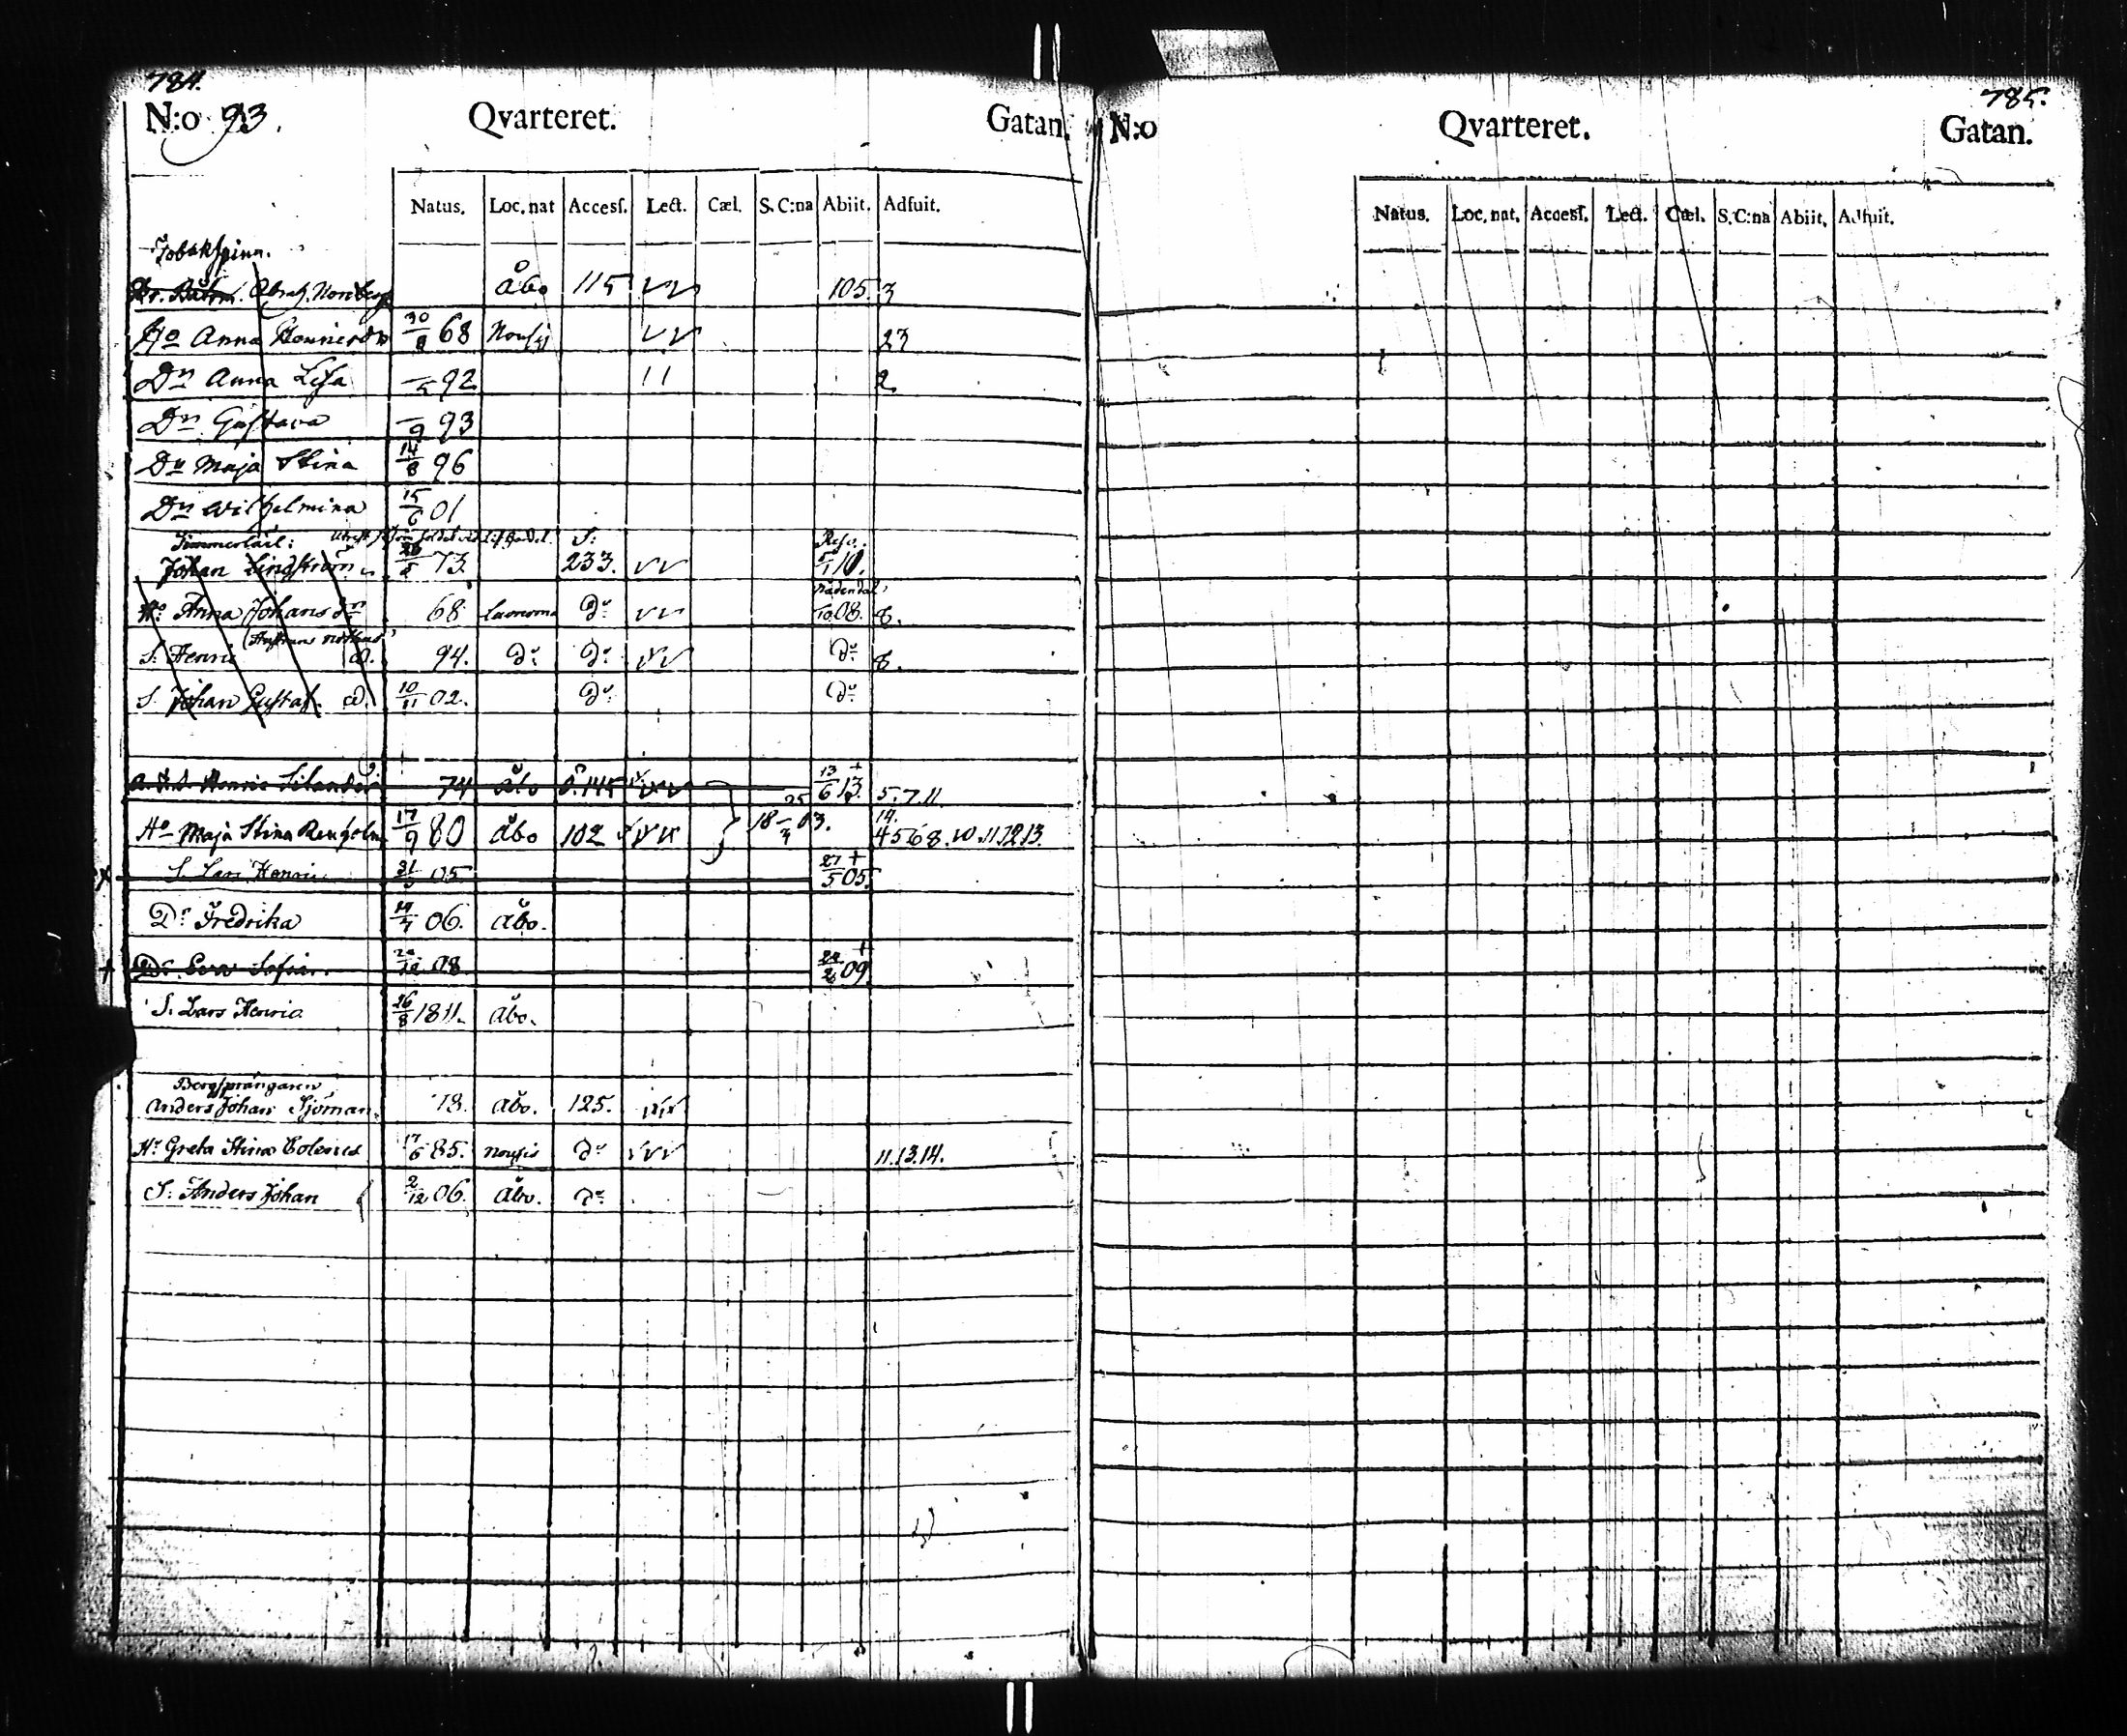 784.
N:o 93. Qvarteret. Gatan.
Natus. Loc. nat Accesſ. Lect. Cæl. S. C:na Abiit. Adfuit.
Tobakſpinn.
Abrah. Norberg Åbo 115 105. 3
Ho Anna 30/8 68 Nousis 23
Dr Anna Liſa /5 92 2
Dr Guſtava /9 93
Dr Maja Stina 14/8 96
Dr Wilhelmina 15/6 01
Timmerkarl: S: Reso.
Johan Lindſtröm 73 233. 5/1 10.
Nådendal
Ho Anna Johans dr 68 Do 08. 8.
S. Henric 94. Do Do Do 8.
S. Johan Gustaf 10/11 02. Do Do
Henric Silander 74 Åbo 13/6 13. + 5.7.11.
14.
Ho Maja Stina 17/9 80 Åbo 102 18 25/4 03. 4 5 6 8. 10. 11. 12. 13.
S. Lars Henric 05 27/5 05. +
Dr Fredrika 06. Åbo.
Dr Eva Sofia 08 09 +
S. Lars Henric 26/8 1811. Åbo.
Bergſprängaren
Anders Johan Sjöman. 78. Åbo. 125.
Hr Greta Stina 17/6 85. Nousis Do 11.13.14.
S: Anders Johan 2/12 06. Åbo. Do
785.
N:o Qvarteret. Gatan.
Natus. Loc. nat. Accesſ. Lect. Cæl. S. C:na Abiit. Adfuit.